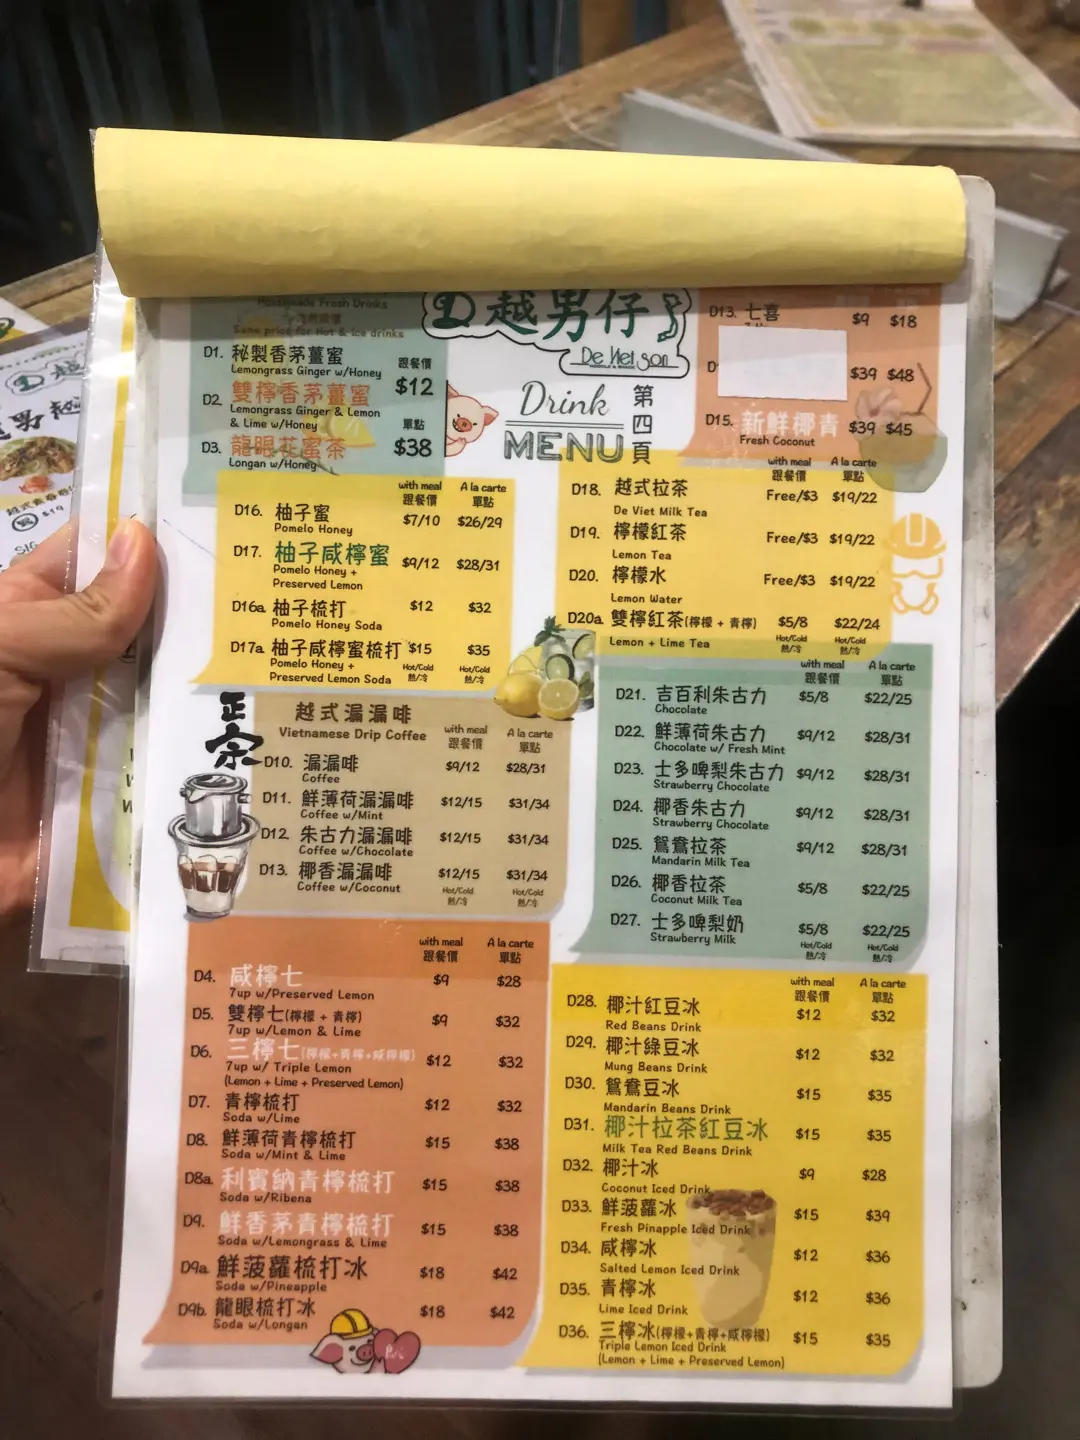 Homemade Fresh Drinks
Same price for Hot & Ice drinks
D1. 秘製香茅薑蜜
Lemongrass Ginger w/Honey
跟餐價
$12
D2. 雙檸香茅薑蜜
Lemongrass Ginger & Lemon
& Lime w/Honey
單點
$38
D3. 龍眼花蜜茶
Longan w/Honey
越男仔
De Viet Son
Drink
MENU
第四頁
D13. 七喜
$9 $18
$39 $48
D15. 新鮮椰青 $39 $45
Fresh Coconut
with meal A la carte
跟餐價 單點
D16. 柚子蜜 $7/10 $26/29
Pomelo Honey
D17. 柚子咸檸蜜 $9/12 $28/31
Pomelo Honey +
Preserved Lemon
D16a 柚子梳打 $12 $32
Pomelo Honey Soda
D17a 柚子咸檸蜜梳打 $15 $35
Pomelo Honey + Hot/Cold Hot/Cold
Preserved Lemon Soda 熱/冷 熱/冷
with meal A la carte
跟餐價 單點
D18. 越式拉茶 Free/$3 $19/22
De Viet Milk Tea
D19. 檸檬紅茶 Free/$3 $19/22
Lemon Tea
D20. 檸檬水 Free/$3 $19/22
Lemon Water
D20a 雙檸紅茶(檸檬 + 青檸) $5/8 $22/24
Lemon + Lime Tea Hot/Cold Hot/Cold
熱/冷 熱/冷
正宗
越式漏漏啡
Vietnamese Drip Coffee
with meal A la carte
跟餐價 單點
D10. 漏漏啡 $9/12 $28/31
Coffee
D11. 鮮薄荷漏漏啡 $12/15 $31/34
Coffee w/Mint
D12. 朱古力漏漏啡 $12/15 $31/34
Coffee w/Chocolate
D13. 椰香漏漏啡 $12/15 $31/34
Coffee w/Coconut Hot/Cold Hot/Cold
熱/冷 熱/冷
with meal A la carte
跟餐價 單點
D21. 吉百利朱古力 $5/8 $22/25
Chocolate
D22. 鮮薄荷朱古力 $9/12 $28/31
Chocolate w/ Fresh Mint
D23. 士多啤梨朱古力 $9/12 $28/31
Strawberry Chocolate
D24. 椰香朱古力 $9/12 $28/31
Strawberry Chocolate
D25. 鴛鴦拉茶 $9/12 $28/31
Mandarin Milk Tea
D26. 椰香拉茶 $5/8 $22/25
Coconut Milk Tea
D27. 士多啤梨奶 $5/8 $22/25
Strawberry Milk Hot/Cold Hot/Cold
熱/冷 熱/冷
with meal A la carte
跟餐價 單點
D4. 咸檸七 $9 $28
7up w/Preserved Lemon
D5. 雙檸七(檸檬 + 青檸) $9 $32
7up w/Lemon & Lime
D6. 三檸七(檸檬+青檸+咸檸檬) $12 $32
7up w/ Triple Lemon
(Lemon + Lime + Preserved Lemon)
D7. 青檸梳打 $12 $32
Soda w/Lime
D8. 鮮薄荷青檸梳打 $15 $38
Soda w/Mint & Lime
D8a. 利賓納青檸梳打 $15 $38
Soda w/Ribena
D9. 鮮香茅青檸梳打 $15 $38
Soda w/Lemongrass & Lime
D9a 鮮菠蘿梳打冰 $18 $42
Soda w/Pineapple
D9b. 龍眼梳打冰 $18 $42
Soda w/Longan
with meal A la carte
跟餐價 單點
D28. 椰汁紅豆冰 $12 $32
Red Beans Drink
D29. 椰汁綠豆冰 $12 $32
Mung Beans Drink
D30. 鴛鴦豆冰 $15 $35
Mandarin Beans Drink
D31. 椰汁拉茶紅豆冰 $15 $35
Milk Tea Red Beans Drink
D32. 椰汁冰 $9 $28
Coconut Iced Drink
D33. 鮮菠蘿冰 $15 $39
Fresh Pinapple Iced Drink
D34. 咸檸冰 $12 $36
Salted Lemon Iced Drink
D35. 青檸冰 $12 $36
Lime Iced Drink
D36. 三檸冰(檸檬+青檸+咸檸檬) $15 $35
Triple Lemon Iced Drink
(Lemon + Lime + Preserved Lemon)